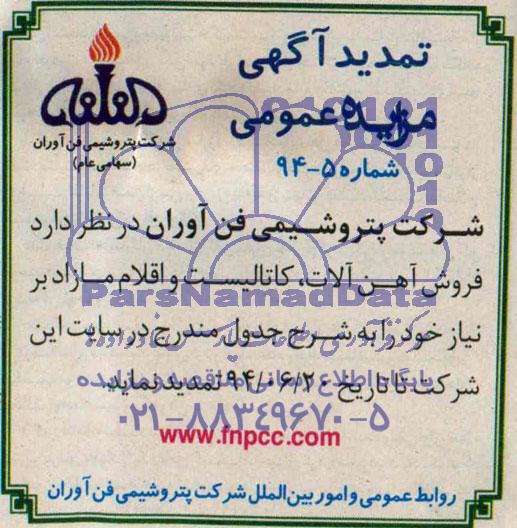 تمدید آگهی
مزایده عمومی
شماره ۵-۹۴
شرکت پتروشیمی فن آوران
(سهامی عام)
شرکت پتروشیمی فن آوران در نظر دارد
فروش آهن آلات، کاتالیست و اقلام مازاد بر
نیاز خود را به شرح جدول مندرج در سایت این
شرکت تا تاریخ ۹۴/۰۶/۲۰ تمدید نماید.
www.fnpcc.com
روابط عمومی و امور بین الملل شرکت پتروشیمی فن آوران
ParsNamadData
پایگاه اطلاع رسانی مناقصه و مزایده
۰۲۱-۸۸۳۴۹۶۷۰-۵